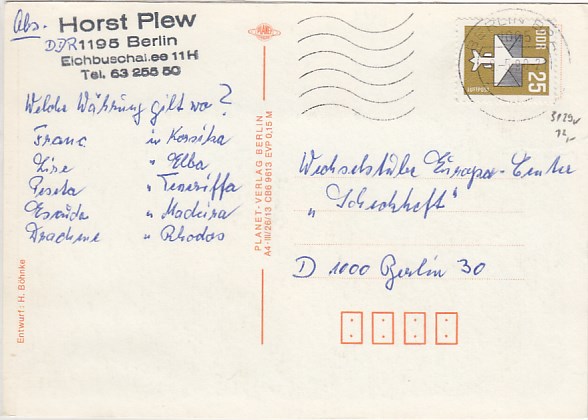 Abs. Horst Plew
DDR 1195 Berlin
Eichbuschallee 11H
Tel. 63 255 50
Welche Währung gilt wo?
Franc in Korsika
Lire " Elba
Peseta " Teneriffa
Escudo " Madeira
Drachme " Rhodos
Entwurf: H. Böhnke
PLANET-VERLAG BERLIN
A4-III/26/13 CB6 9613 EVP 0,15 M
PLANET
BERLIN
1085
DDR
25
LUFTPOST
12,-
Wechselstube Europa-Center
"Scheckheft"
D 1000 Berlin 30